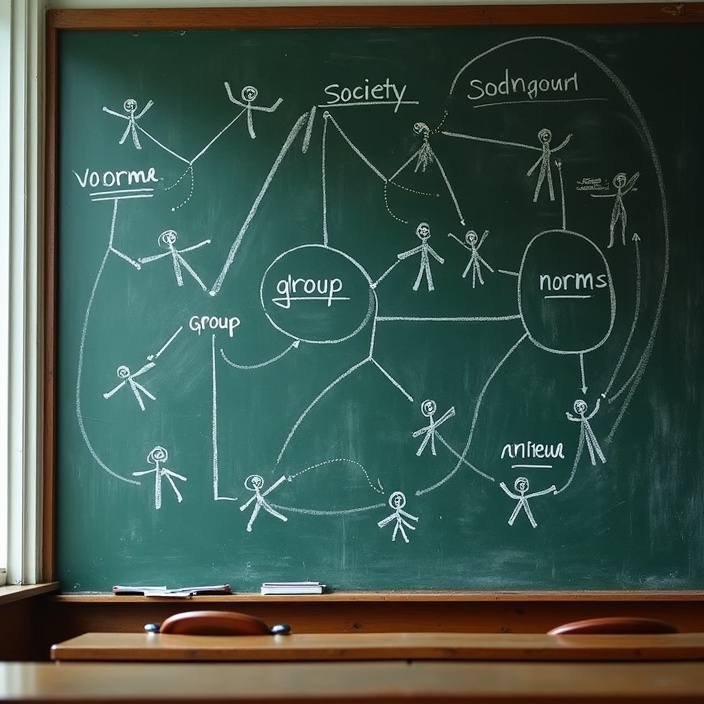 Society
Sodngourl
Voorme
group
norms
GROUP